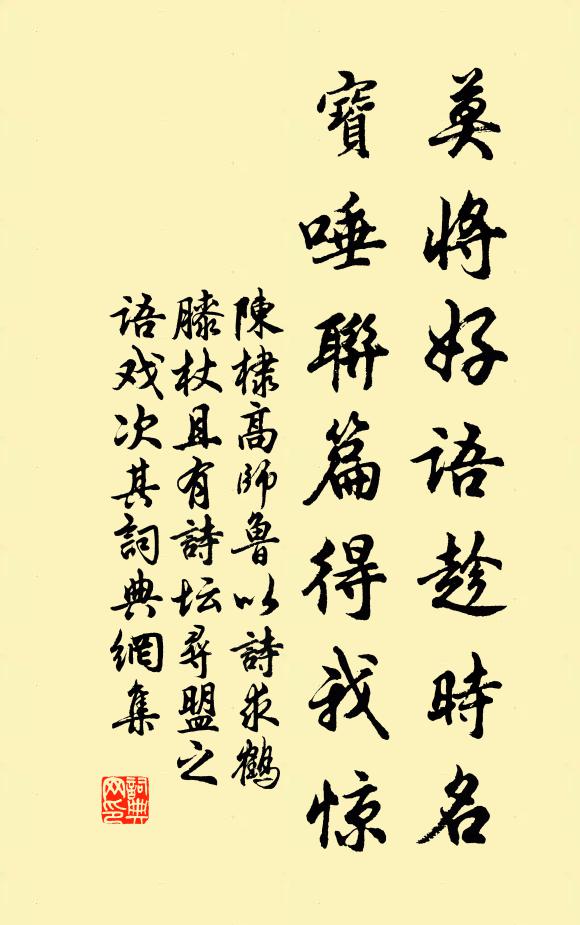 莫将好语趁時名
寶唾聯篇得我惊
陳棣高師魯以詩求鶴
膝杖且有詩坛尋盟之
语戏次其詞典網集
詞典网印